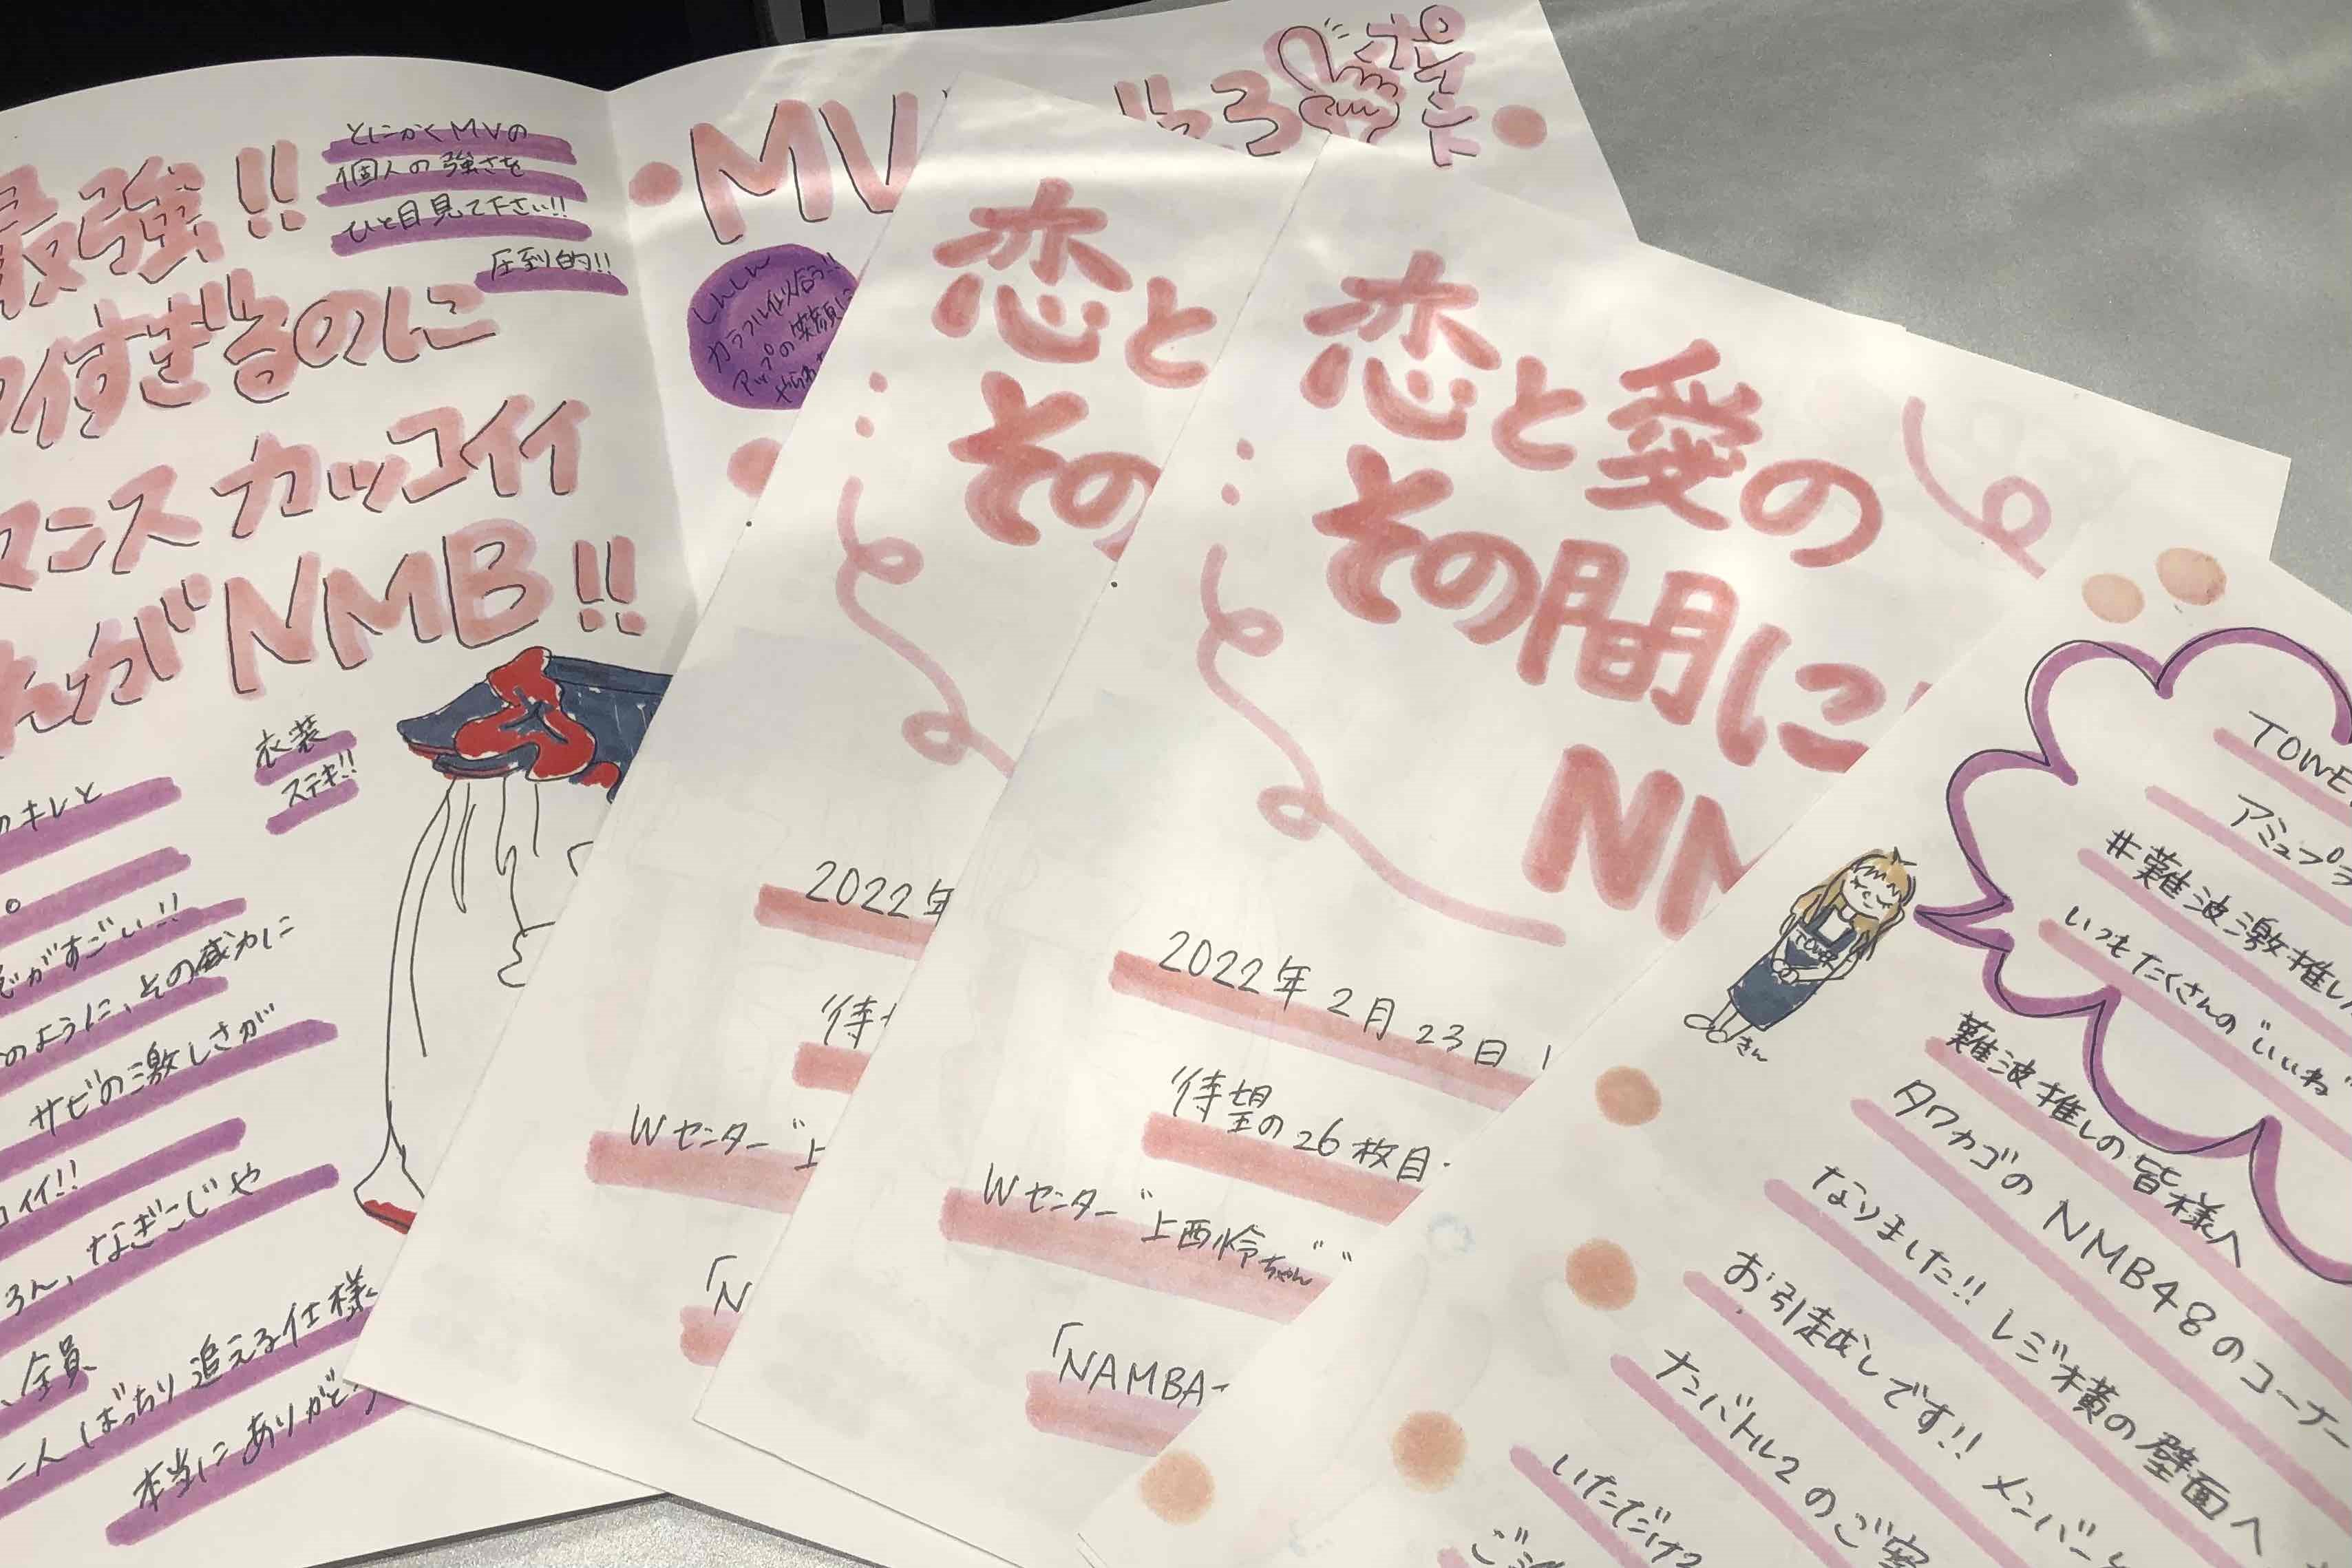 最強!!
とにかくMVの
個人の強さを
ひと目見て下さい!!
圧倒的!!
イすぎるのに
マンス カッコイイ
がNMB!!
衣装
ステキ!!
のキレと
がすごい!!
のように、その威力に
サビの激しさが
コイイ!!
ろん、なぎこじや
、全員
一人ばっちり追える仕様
本当にありがとう
MV
ポイント
しんしん
カラフル似合う!!
アップの笑顔に
恋と
その
2022年
待
Wセンター"上
「N
恋と愛の
その間に
NM
2022年2月23日
待望の26枚目
Wセンター"上西怜ちゃん"
「NAMBA
TOWE
アミュプラ
#難波激推し
いつもたくさんの"いいね"
TOWER
難波推しの皆様へ
タワカゴのNMB48のコーナー
なりました!! レジ横の壁面へ
お引越しです!! メンバーと
ナンバトル2のご案
いただけ